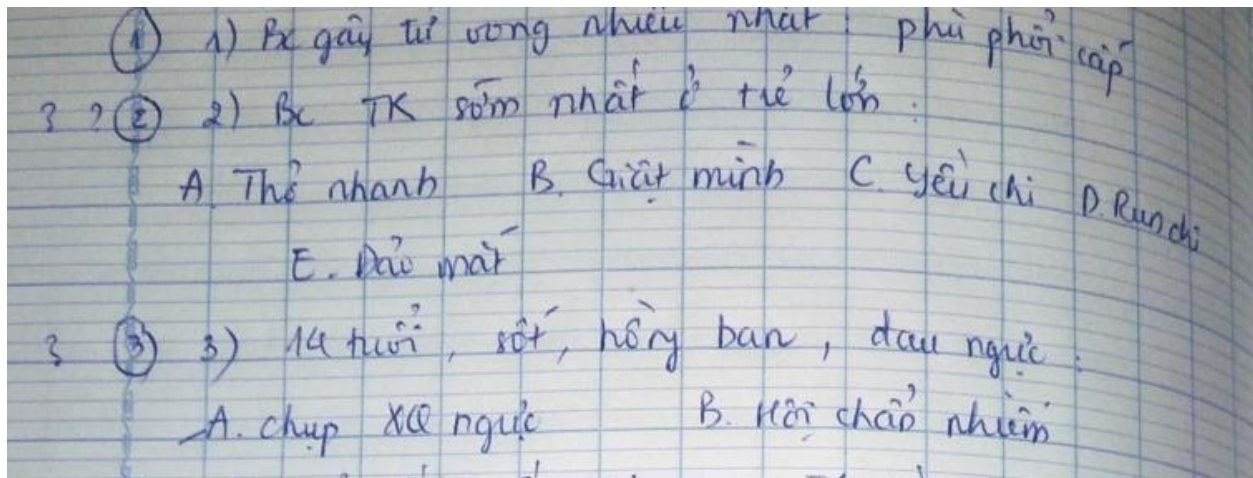 ① 1) Bc gây tử vong nhiều nhất : phù phổi cấp
? ? ② 2) Bc TK sớm nhất ở trẻ lớn :
A. Thở nhanh B. Giật mình C. Yếu chi D. Run chi
E. Đảo mắt
3 ③ 3) 14 tuổi, sốt, hồng ban, đau ngực :
A. chụp XQ ngực B. Hội chẩn nhiễm